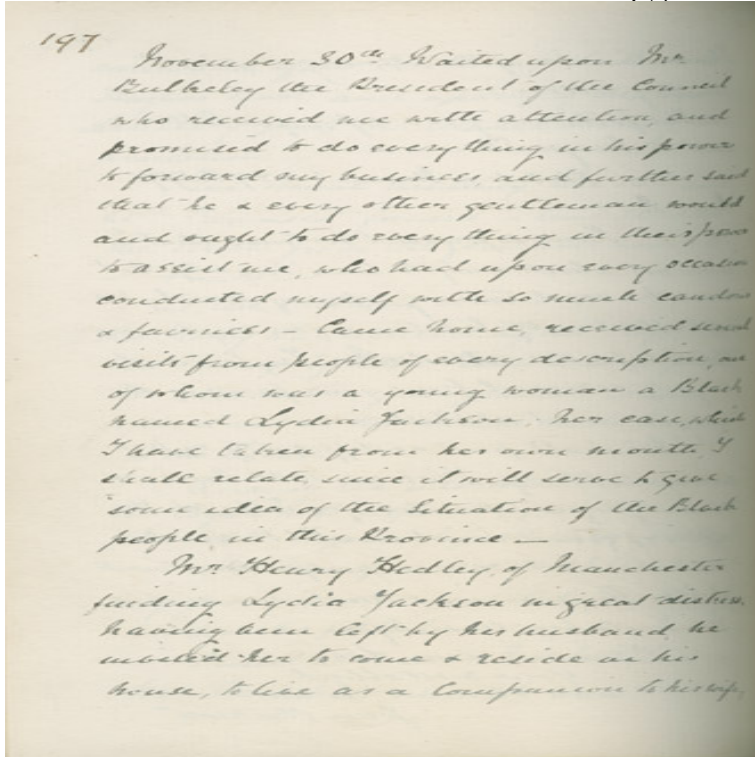 197
November 30th Waited upon Mr
Bulkeley the President of the Council
who received me with attention, and
promised to do every thing in his power
to forward my business, and further said
that he & every other gentleman would
and ought to do every thing in their power
to assist me, who had upon every occasion
conducted myself with so much candour
& fairness – Came home, received several
visits from people of every description, one
of whom was a young woman a Black
named Lydia Jackson; her case, which
I have taken from her own mouth, I
shall relate, since it will serve to give
some idea of the Situation of the Black
people in this Province —
Mr Henry Hedley, of Manchester
finding Lydia Jackson in great distress
having been left by her husband, he
invited her to come & reside in his
house, to live as a Companion to his wife,